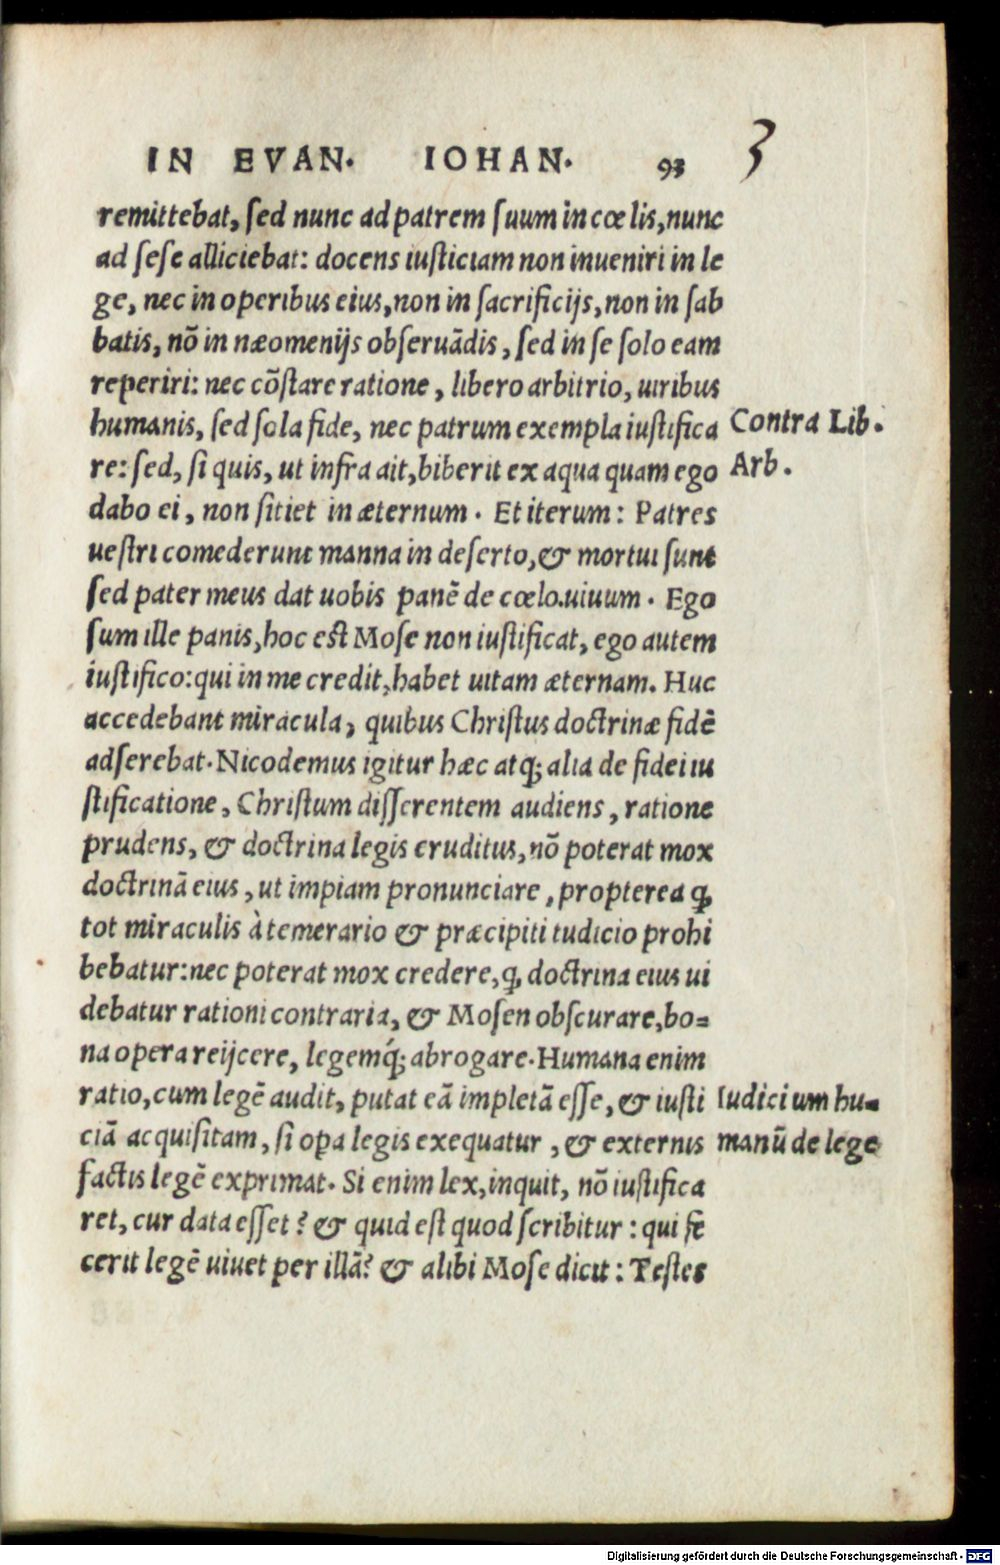 IN EVAN. IOHAN. 93 3
remittebat, ſed nunc ad patrem ſuum in cœlis, nunc
ad ſeſe alliciebat: docens iuſticiam non inueniri in le
ge, nec in operibus eius, non in ſacrificijs, non in ſab
batis, nõ in næomenijs obſeruãdis, ſed in ſe ſolo eam
reperiri: nec cõſtare ratione, libero arbitrio, uiribus
humanis, ſed ſola fide, nec patrum exempla iuſtifica
Contra Lib.
re: ſed, ſi quis, ut infra ait, biberit ex aqua quam ego
Arb.
dabo ei, non ſitiet in æternum. Et iterum: Patres
ueſtri comederunt manna in deſerto, & mortui ſunt
ſed pater meus dat uobis panẽ de cœlo.uiuum. Ego
ſum ille panis, hoc eſt Moſe non iuſtificat, ego autem
iuſtifico: qui in me credit, habet uitam æternam. Huc
accedebant miracula, quibus Chriſtus doctrinæ fidẽ
adſerebat. Nicodemus igitur hæc atq; alia de fidei iu
ſtificatione, Chriſtum diſſerentem audiens, ratione
prudens, & doctrina legis eruditus, nõ poterat mox
doctrinã eius, ut impiam pronunciare, propterea ꝙ
tot miraculis à temerario & præcipiti iudicio prohi
bebatur: nec poterat mox credere, ꝙ doctrina eius ui
debatur rationi contraria, & Moſen obſcurare, bo=
na opera reijcere, legemq́; abrogare. Humana enim
ratio, cum legẽ audit, putat eã impletã eſſe, & iuſti
Iudicium hu=
ciã acquiſitam, ſi oꝑa legis exequatur, & externis
manũ de lege
factis legẽ exprimat. Si enim lex, inquit, nõ iuſtifica
ret, cur data eſſet? & quid eſt quod ſcribitur: qui fe
cerit legẽ uiuet per illã? & alibi Moſe dicit: Teſtes
Digitalisierung gefördert durch die Deutsche Forschungsgemeinschaft - DFG